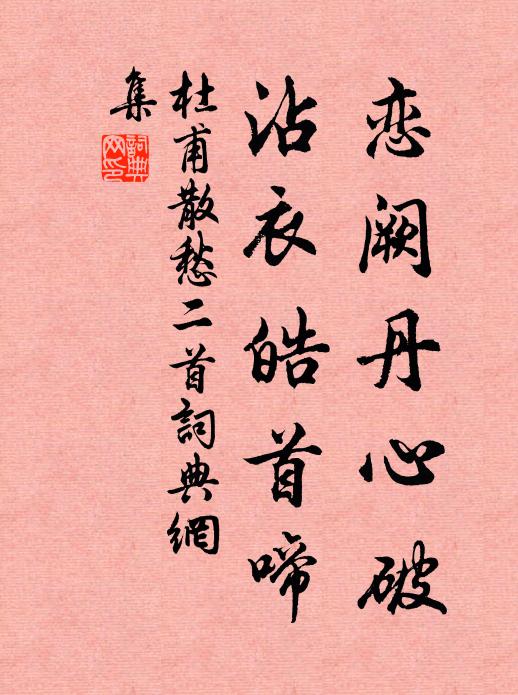 恋阙丹心破
沾衣皓首啼
杜甫散愁二首詞典網
集
詞典
网印